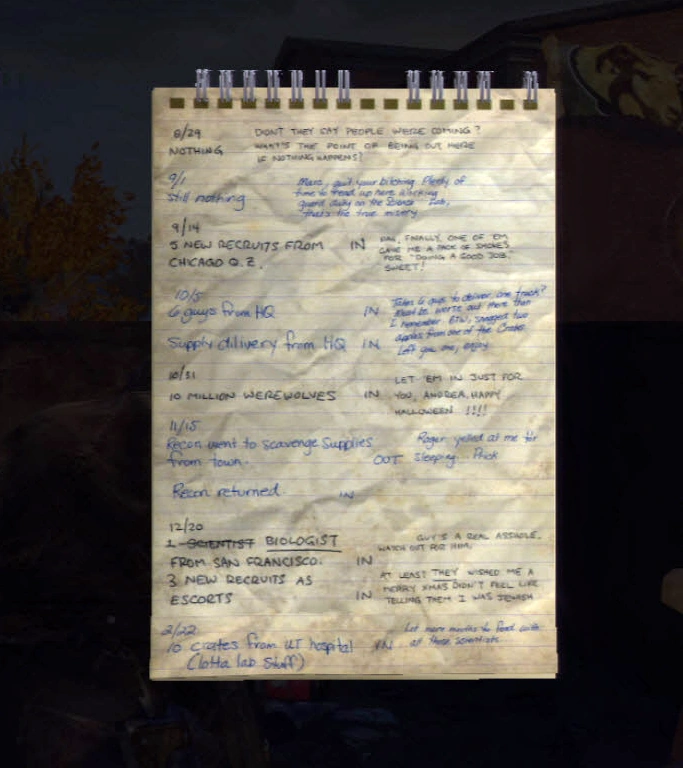 8/29
NOTHING
DIDN'T THEY SAY PEOPLE WERE COMING?
WHAT'S THE POINT OF BEING OUT HERE
IF NOTHING HAPPENS?
9/1
Still nothing
Man, quit your bitching. Plenty of
guard duty on the Science Lab,
that's the true misery
9/14
5 NEW RECRUITS FROM
CHICAGO Q.Z.
IN
FINALLY, ONE OF 'EM
GAVE ME A PACK OF SMOKES
FOR "DOING A GOOD JOB."
SWEET!
10/5
6 guys from HQ
IN
Supply dilivery from HQ
IN
Takes 6 guys to deliver one truck?
Must be worse out there than
I remember. BTW, snagged two
apples from one of the Crates.
Left you one, enjoy
10/31
10 MILLION WEREWOLVES
IN
LET 'EM IN JUST FOR
YOU, ANDREA. HAPPY
HALLOWEEN !!!!
11/15
Recon went to scavenge Supplies
from town.
OUT
Roger yelled at me for
sleeping. Prick
Recon returned
IN
12/20
1 SCIENTIST BIOLOGIST
FROM SAN FRANCISCO.
IN
GUY'S A REAL ASSHOLE.
WATCH OUT FOR HIM.
3 NEW RECRUITS AS
ESCORTS
IN
AT LEAST THEY WISHED ME A
MERRY XMAS DIDN'T FEEL LIKE
TELLING THEM I WAS JEWISH
2/22
10 crates from UT hospital
(lotta lab stuff)
IN
more mouths to feed with
all these scientists